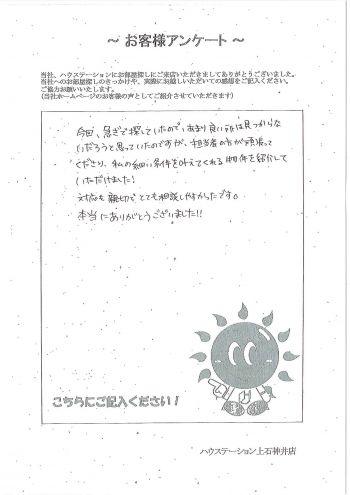 ～ お客様アンケート ～
当社、ハウステーションにお部屋探しにご来店いただきましてありがとうございました。
当社へのお部屋探しのきっかけや、実際にお越しいただいての感想をご記入ください。
ご協力お願いいたします。
(当社ホームページのお客様の声としてご紹介させていただきます)
今回、急ぎで探していたのであまり良い所は見つからな
いだろうと思っていたのですが、担当者の方が頑張って
くださり、私の細い条件を叶えてくれる物件を紹介して
いただけました!
対応も親切で とても相談しやすかったです。
本当にありがとうございました!!
こちらにご記入ください！
ハウステーション上石神井店